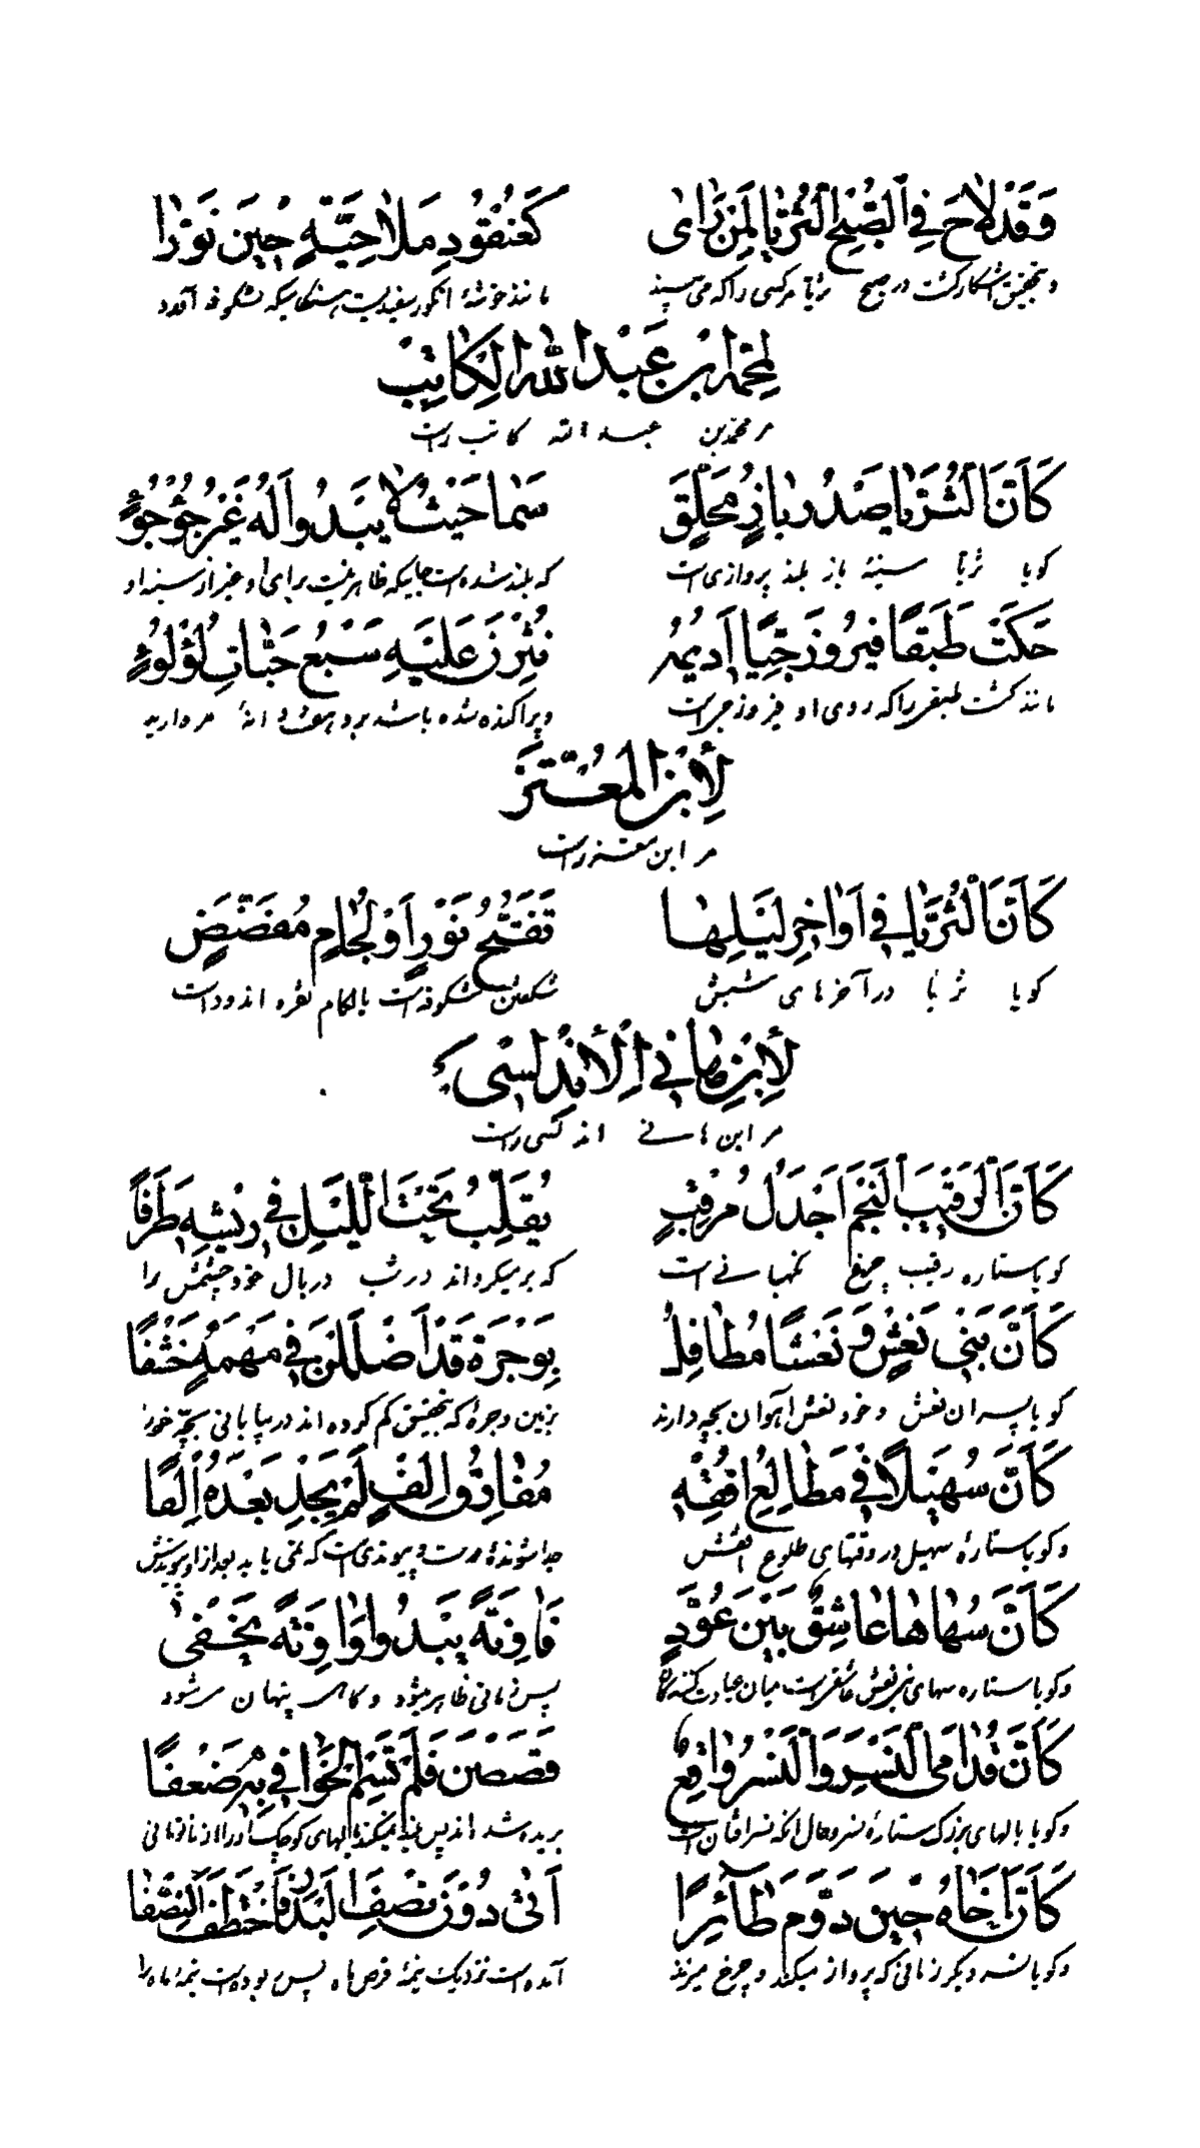 وَقَدْ لَاحَ فِي الصُّبْحِ الثُّرَيَّا لِمَنْ رَأَى كَعُنْقُودِ مَلَاحِيَّةٍ حِينَ نَوَّرَا
و بتحقیق آشکار گشت در صبح ثریا مر کسی را که می بیند مانند خوشهٔ انگور سفیدیست هنگامیکه شکوفه آورد
لِمُحَمَّد ابْن عَبْدِ اللهِ الْكَاتِبْ
مر محمد بن عبد الله کاتب راست
كَأَنَّ الثُّرَيَّا صَدْرُ بَازٍ مُحَلِّقٍ سَمَا حَيْثُ لَا يَبْدُو لَهُ غَيْرُ جُؤْجُؤٍ
کویا ثریا سینهٔ باز بلند پروازی است که بلند شده است جاییکه ظاهر نیست برای او غیر از سینه او
حَكَتْ طَبَقًا فَيْرُوزَجِيًّا اَدِيمُهُ نُثِرْنَ عَلَيْهِ سَبْعُ حَبَّاتِ لُؤْلُؤٍ
مانند گشت طبقی را که روی او فیروزجی است و پراکنده شده باشد برو هفت دانهٔ مروارید
لِأَبْنِ الْمُعْتَزِّ
مر ابن معتز راست
كَأَنَّ الثُّرَيَّا فِي اَوَاخِرِ لَيْلِهَا تَفَتُّحُ نَوْرٍ اَوْ لِجَامٍ مُفَضَّضٍ
کویا ثریا در آخرهای شبش شکفتن شکوفه است یا لکام نقره اندود است
لِأَبْنِ هَانِي الْأَنْدَلُسِي
مر ابن هانی اندلسی راست
كَأَنَّ الرَّقِيبَ النَّجْمَ اَجْدَلُ مُرْقَبٍ يُقَلِّبُ تَحْتَ اللَّيْلِ فِي رِيشِهِ طَرْفًا
کویا ستاره رقیب چرغ نکهبانی است که برمیکرداند در شب در بال خود چشمش را
كَأَنَّ بَنِي نَعْشٍ وَنَعْشًا مُطَافِلُ بِوَجْرَةَ قَدْ اَضْلَلْنَ فِي مَهْمَهٍ خَشْفًا
کویا پسران نعش و خود نعش آهوان بچه دارند بزمین وجره که بتحقیق کم کرده اند در بیابانی بچهٔ خود
كَأَنَّ سُهَيْلًا فِي مَطَالِعِ اُفْقِهِ مُفَارِقُ اِلْفٍ لَمْ يَجِدْ بَعْدَهُ اِلْفًا
و کویا ستارهٔ سهیل در وقتهای طلوع افقش جدا شوندهٔ است که نمی یابد بعد از او
كَأَنَّ سُهَاهَا عَاشِقٌ بَيْنَ عُوَّدٍ فَاوِنَةً يَبْدُو وَاوِنَةً يَخْفَى
و کویا ستاره سهای عاشقی است میان عیادت کنندگان پس زمانی ظاهر میشود و کاهی پنهان میشود
كَأَنَّ قُدَامَى النَّسْرِ وَالنَّسْرُ وَاقِعٌ قُصِصْنَ فَلَمْ تَسْمُ الْخَوَافِي بِهِ ضَعْفًا
و کویا بالهای بزرگ ستارهٔ نسر و حال آنکه نسر افتان است بریده شد اند پس بلند نمیکند بالهای کوچک او را از ناتوانی
كَأَنَّ اَخَاهُ حِينَ دَوَّمَ طَائِرًا اَتَى دُونَ نِصْفِ الْبَدْرِ فَاخْتَطَفَ النِّصْفَا
و کویا نسر دیگر زمانی که پرواز میکند و چرخ میزند آمده است نزدیک نیمهٔ قرص ماه پس ربوده است نیمهٔ ماه را